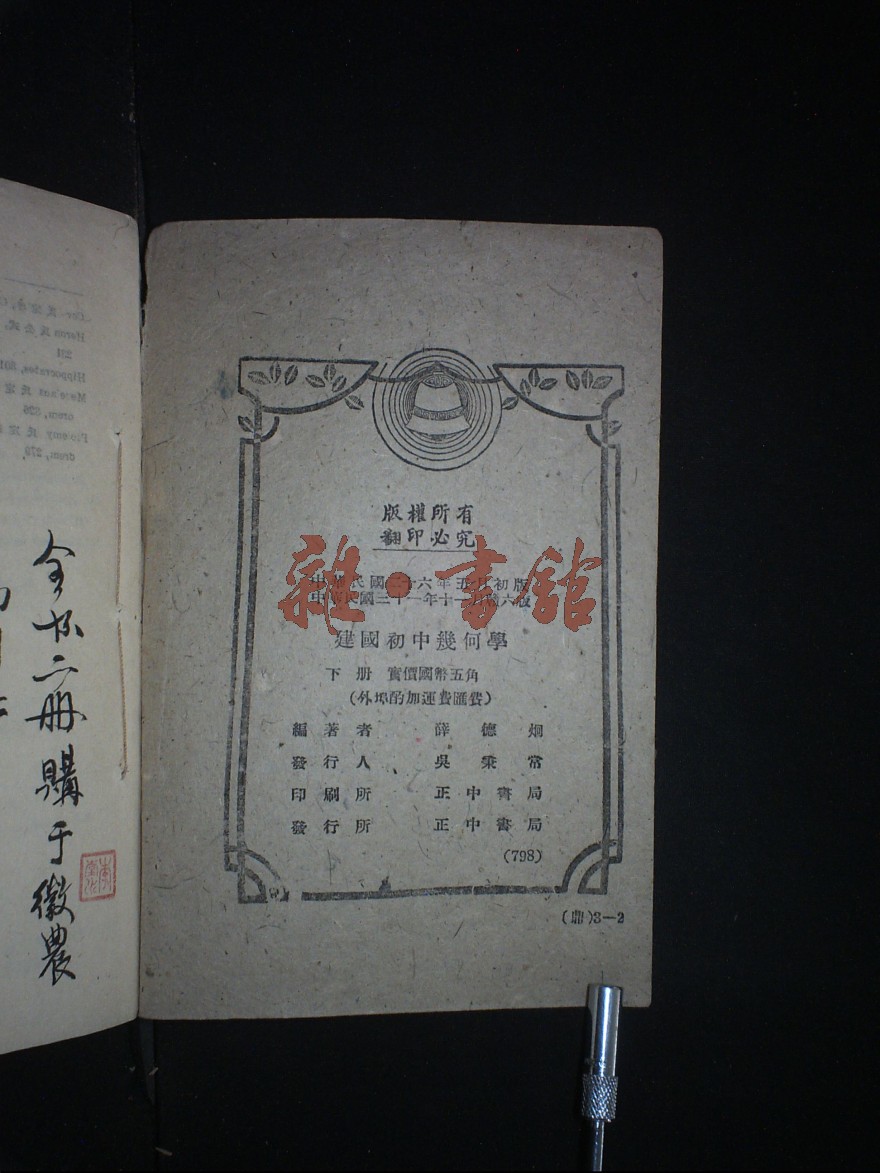 版權所有
翻印必究
中華民國二十六年五月初版
中華民國三十一年十一月贛六版
雜·書館
建國初中幾何學
下冊 實價國幣五角
(外埠酌加運費匯費)
編著者 薛德烱
發行人 吳秉常
印刷所 正中書局
發行所 正中書局
(798)
(鼎)3—2
全書二册購于徽農